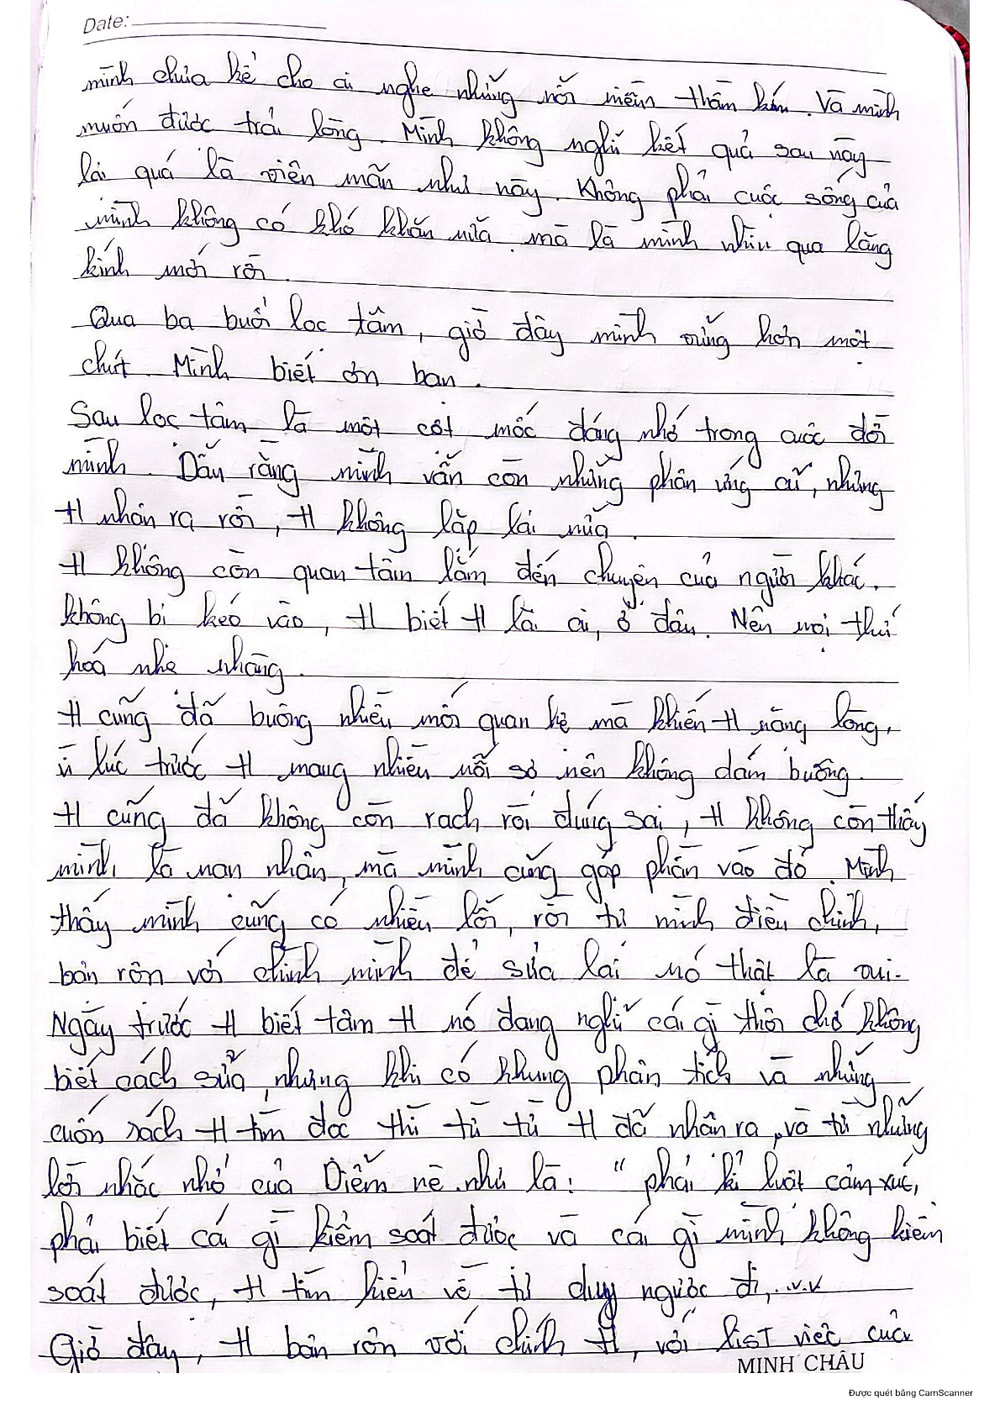 Date:
mình chưa kể cho ai nghe những nỗi niềm thầm kín. Và mình
muốn được trải lòng. Mình không nghĩ kết quả sau này
lại quá là viên mãn như này. Không phải cuộc sống của
mình không có khó khăn nữa mà là mình nhìn qua lăng
kính mới rồi.
Qua ba buổi lọc tâm, giờ đây mình vững hơn một
chút. Mình biết ơn bạn.
Sau lọc tâm là một cột mốc đáng nhớ trong cuộc đời
mình. Dẫu rằng mình vẫn còn những phản ứng cũ, nhưng
H nhận ra rồi, H không lặp lại nữa.
H không còn quan tâm lắm đến chuyện của người khác.
không bị kéo vào, H biết H là ai, ở đâu. Nên mọi thứ
hoá nhẹ nhàng.
H cũng đã buông nhiều mối quan hệ mà khiến H nặng lòng,
vì lúc trước H mang nhiều nỗi sợ nên không dám buông.
H cũng đã không còn rạch ròi đúng sai, H không còn thấy
mình là nạn nhân, mà mình cũng góp phần vào đó. Mình
thấy mình cũng có nhiều lỗi, rồi tự mình điều chỉnh,
bận rộn với chính mình để sửa lại nó thật là vui.
Ngày trước H biết tâm H nó đang nghĩ cái gì thôi chớ không
biết cách sửa, nhưng khi có khung phân tích và những
cuốn sách H tìm đọc thì từ từ H đã nhận ra, và từ những
lời nhắc nhở của Diễm nè như là: " phải kỉ luật cảm xúc,
phải biết cái gì kiểm soát được và cái gì mình không kiểm
soát được, H tìm hiểu về tư duy ngược đi,..v.v
Giờ đây, H bận rộn với chính H, với list việc của
MINH CHÂU
Được quét bằng CamScanner